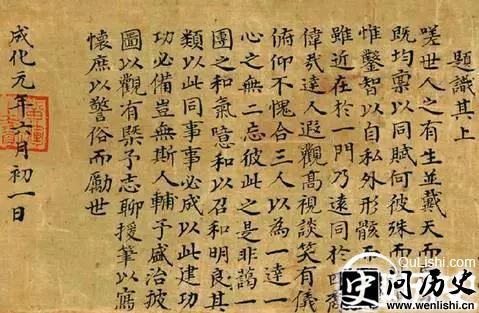 題識其上
嗟世人之有生並戴天而
既均禀以同賦何彼殊而
惟鑿智以自私外形骸而
雖近在於一門乃遠同於四裔
偉哉達人遐觀高視談笑有儀
俯仰不愧合三人以為一達一
心之無二忘彼此之是非藹一
團之和氣噫和以召和明良其
類以此同事事必成以此建功
功必備豈無斯人輔予盛治披
圖以觀有槩予志聊援筆以寫
懷庶以警俗而勵世
成化元年六月初一日
QuLishi.com
问历史
www.wenlishi.com